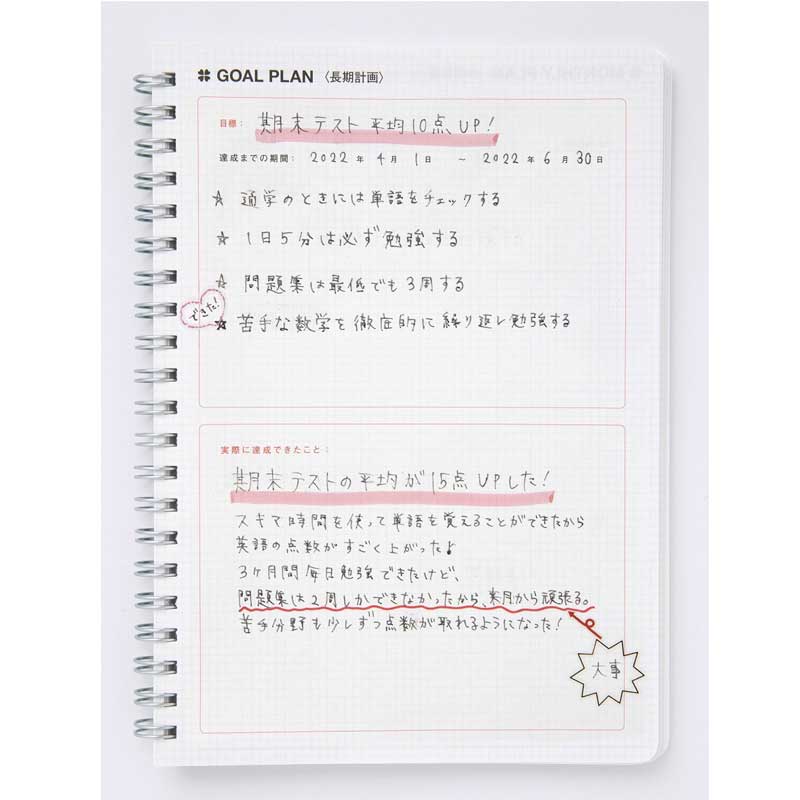 GOAL PLAN 〈長期計画〉
目標： 期末テスト平均10点UP!
達成までの期間： 2022 年 4 月 1 日 ～ 2022 年 6 月 30 日
☆ 通学のときには単語をチェックする
☆ 1日5分は必ず勉強する
☆ 問題集は最低でも3周する
できた!
★ 苦手な数学を徹底的に繰り返し勉強する
実際に達成できたこと：
期末テストの平均が15点UPした!
スキマ時間を使って単語を覚えることができたから
英語の点数がすごく上がった♪
3ヶ月間毎日勉強できたけど、
問題集は2周しかできなかったから、来月から頑張る。
苦手分野も少しずつ点数が取れるようになった!
大事